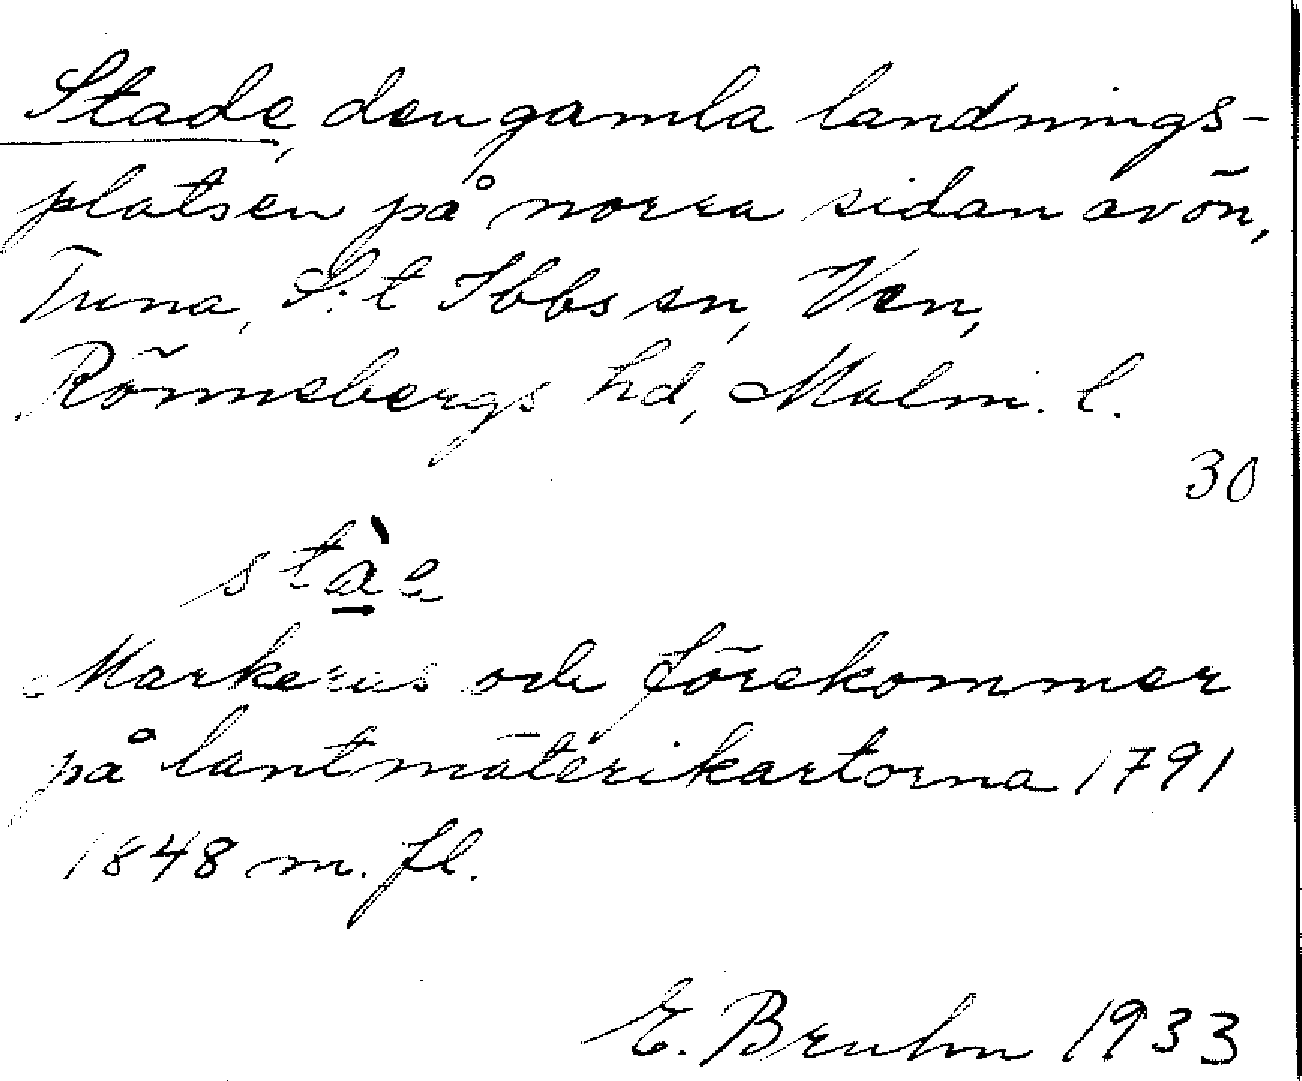 Stade, den gamla landnings-
platsen på norra sidan av ön,
Tuna, S:t Ibbs sn, Ven,
Rönnebergs hd, Malm. l.
30
stàe
Markeras och förekommer
på lantmäterikartorna 1791
1848 m. fl.
E. Bruhn 1933